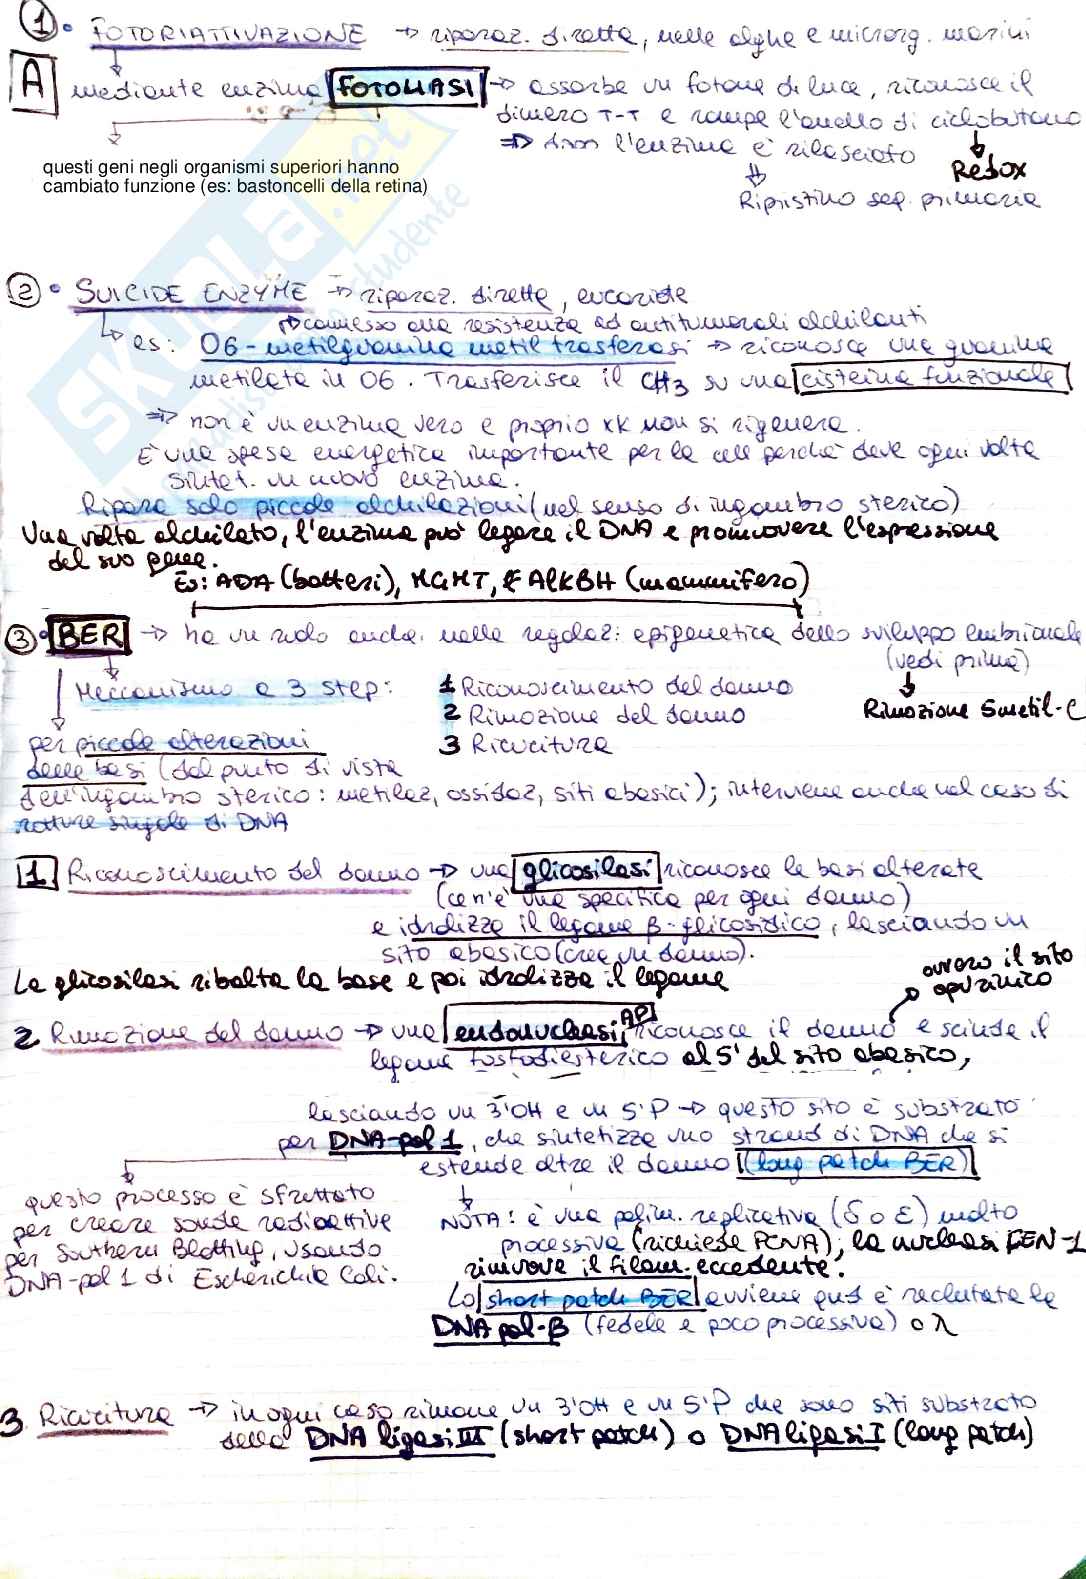 1 • FOTORIATTIVAZIONE → riparaz. diretta, nelle alghe e microrg. marini
A mediante enzima FOTOLIASI → assorbe un fotone di luce, riconosce il
dimero T-T e rompe l'anello di ciclobutano
⇒ dnn l'enzima è rilasciato
Redox
Ripristino seq. primaria
questi geni negli organismi superiori hanno
cambiato funzione (es: bastoncelli della retina)
2 • SUICIDE ENZYME → riparaz. diretta, eucariote
→ connesso alla resistenza ad antitumorali alchilanti
→ es: O6-metilguanina metil trasferasi → riconosce una guanina
metilata in O6. Trasferisce il CH3 su una cisteina funzionale
⇒ non è un enzima vero e proprio xk non si rigenera.
È una spesa energetica importante per la cell perchè deve ogni volta
sintet. un nuovo enzima.
Ripara solo piccole alchilazioni (nel senso di ingombro sterico)
Una volta alchilato, l'enzima può legare il DNA e promuovere l'espressione
del suo gene.
Es: ADA (batteri), MGMT, E AlKBH (mammifero)
3 • BER → ha un ruolo anche nella regolaz. epigenetica dello sviluppo embrionale
(vedi prima)
Rimozione 5metil-C
Meccanismo a 3 step:
1 Riconoscimento del danno
2 Rimozione del danno
3 Ricucitura
per piccole alterazioni
delle basi (dal punto di vista
dell'ingombro sterico: metilaz, ossidaz, siti abasici); interviene anche nel caso di
rotture singole di DNA
1 Riconoscimento del danno → una glicosilasi riconosce le basi alterate
(ce n'è una specifica per ogni danno)
e idrolizza il legame β-glicosidico, lasciando un
sito abasico (crea un danno).
La glicosilasi ribalta la base e poi idrolizza il legame
ovvero il sito
apurinico
2 Rimozione del danno → una endonucleasi AP riconosce il danno e scinde il
legame fosfodiesterico al 5' del sito abasico,
lasciando un 3'OH e un 5'P → questo sito è substrato
per DNA-pol 1, che sintetizza uno strand di DNA che si
estende oltre il danno (long patch BER)
questo processo è sfruttato
per creare sonde radioattive
per Southern Blotting, usando
DNA-pol 1 di Escherichia Coli.
NOTA: è una polim. replicativa (δ o ε) molto
processiva (richiese PCNA); la nucleasi FEN-1
rimuove il filam. eccedente.
Lo short patch BER avviene qnd è reclutata la
DNA pol-β (fedele e poco processiva) o λ
3 Ricucitura → in ogni caso rimane un 3'OH e un 5'P che sono siti substrato
della DNA ligasi III (short patch) o DNA ligasi I (long patch)
SKUOLA.net